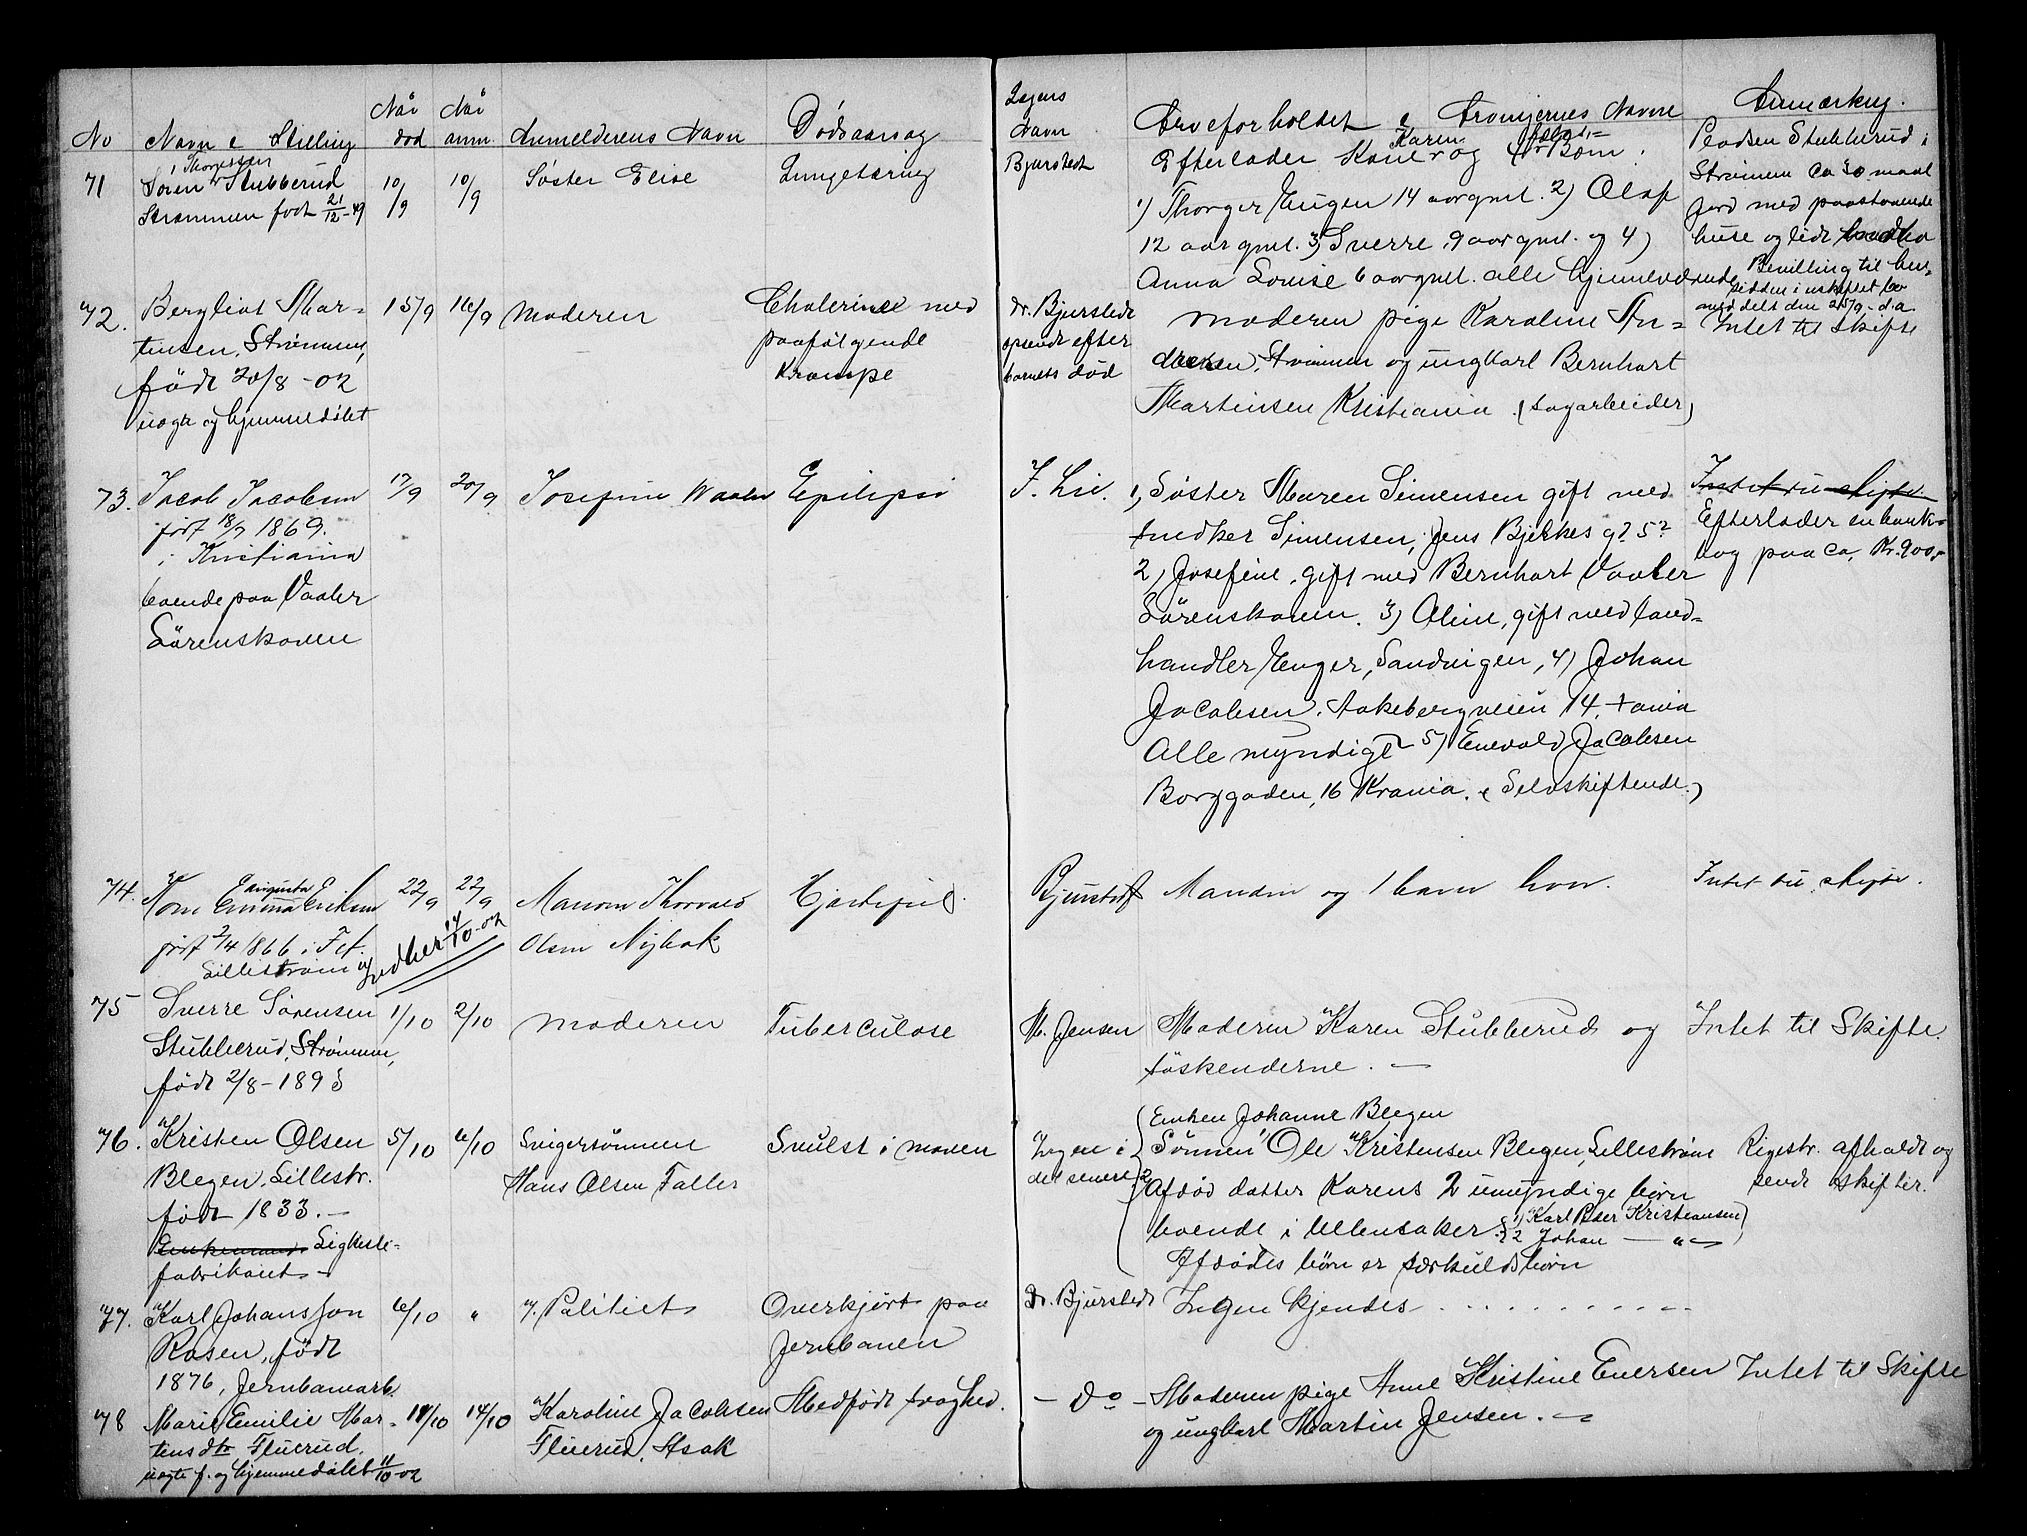 No Navn & Stilling Naar død Naar anm. Anmelderens Navn Dødsaarsag
71 Søren Thorgersen Stubberud 10/9 10/9 Søster Elise Lungetæring
Strømmen født 21/12-49
72. Bergliot Mar- 15/9 16/9 Moderen Cholerine med
tinsen, Strømmen, paafølgende
født 20/8 -02 Krampe
uægte og hjemmedøbt
73. Jacob Jacobsen 17/9 20/9 Josefine Waaler Epilepsi
født 18/7 1869.
i Kristiania
boende paa Vaaler
Sørenskoven
74. Kone Emma Augusta Eriksen 22/9 22/9 Manden Thorvald Hjertefeil.
født 2/4 1866 i Fet. Olsen Nybak
Lillestrøm
14/10-02
75 Sverre Sørensen 1/10 2/10 Moderen Tuberculose
Stubberud, Strømmen,
født 2/8-1893
76. Kristen Olsen 5/10 6/10 Svigersønnen Svulst i maven
Blegen, Lillestr. Hans Olsen Faller
født 1833.-
Enkemand. Sigkesle-
fabrikant-
77. Karl Johansson 6/10 " v. Politiet Overkjørt paa
Rosen, født Jernbanen
1876, Jernbanearb.
78 Marie Emilie Mar- 11/10 14/10 Karoline Jacobsen Medfødt svaghed.
tensdtr Fluerud. Fluerud, Asak
uægte f. og hjemmedøbt 11/10-02
Lægens
Navn Arveforholdet & Arvingernes Navne Anmærkng.
Bjurstedt Efterlader Kone Karen og 4r Børn: Pladsen Stubberud i
1) Thorger Eugen 14 aar gml. 2) Olaf Strømmen ca 30 maal
12 aar gml. 3) Sverre 9 aar gml. og 4) jord med paastaaende
Anna Louise 6 aar gml. alle hjemmeværende huse og lidt
Bevilling til hen-
sidden i uskiftet bo
meddelt den 25/9- d.a.
dr. Bjurstedt Moderen pige Karoline An- Intet til Skifte
efter dreasen, Strømmen og ungkarl Bernhart
barnets død Martinsen Kristiania (sagarbeider)
F. Lie. 1, Søster Maren Simensen gift med Intet til skifte
snedker Simensen, Jens Bjelkes g? 5? Efterlader en bank-
2) Josefine, gift med Bernhart Vaaler bog paa ca. Kr. 900,-
Sørenskoven. 3) Oline, gift med land-
handler Enger, Sandvigen, 4) Johan
Jacobsen, Aakebergveien 14, +ania
Alle myndige 5) Enevold Jacobsen
Borggaden, 16 Krania. (Selvskiftende.)
Bjurstedt Manden og 1 barn hver. Intet til skifte.
M. Jensen Moderen Karen Stubberud og Intet til Skifte.
søskenderne. -
Enken Johanne Blegen
Ingen i Sønnen Ole Kristensen Blegen, Lillestrøm Rigestr. afholdt og
det senere Afdød datter Karens 2 umyndige børn sendt skifter.
boende i Ullensaker 1) Karl Peder Kristiansen
2 Johan - " -
Afdødes børn er særkuldsbørn
Dr. Bjurstedt Ingen kjendes
- do - Moderen pige Anne Kristine Eversen Intet til Skifte
og ungkarl Martin Jensen. -